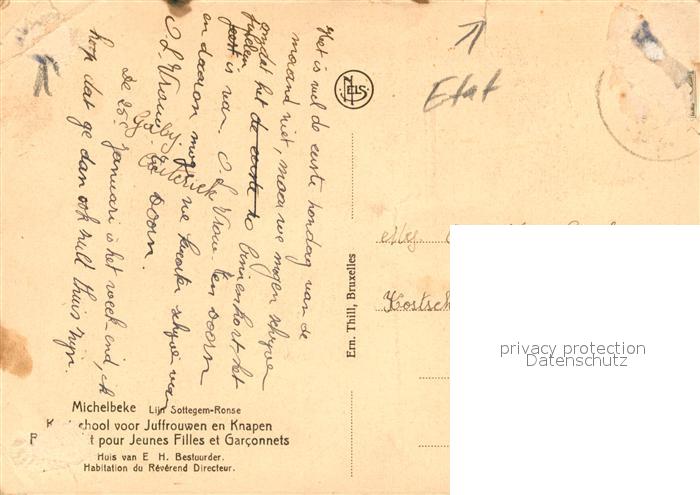 Het is wel de eerste hondag van de
maand niet, maar we mogen schrijven
omdat het de eerste to binnenkort, het
feest is van O. L. Vrouw ten doorn
en daarom mogen we kaarten schrijven van
O. L. Vrouw
ten Doorn.
De 25e Januari is het week-end, ik
hoop dat ge dan ook zult thuis zijn.
Etat
Em. Thill, Bruxelles
Mej
Michelbeke Lijn Sottegem-Ronse
school voor Juffrouwen en Knapen
t pour Jeunes Filles et Garçonnets
Huis van E. H. Bestuurder.
Habitation du Révérend Directeur.
privacy protection
Datenschutz